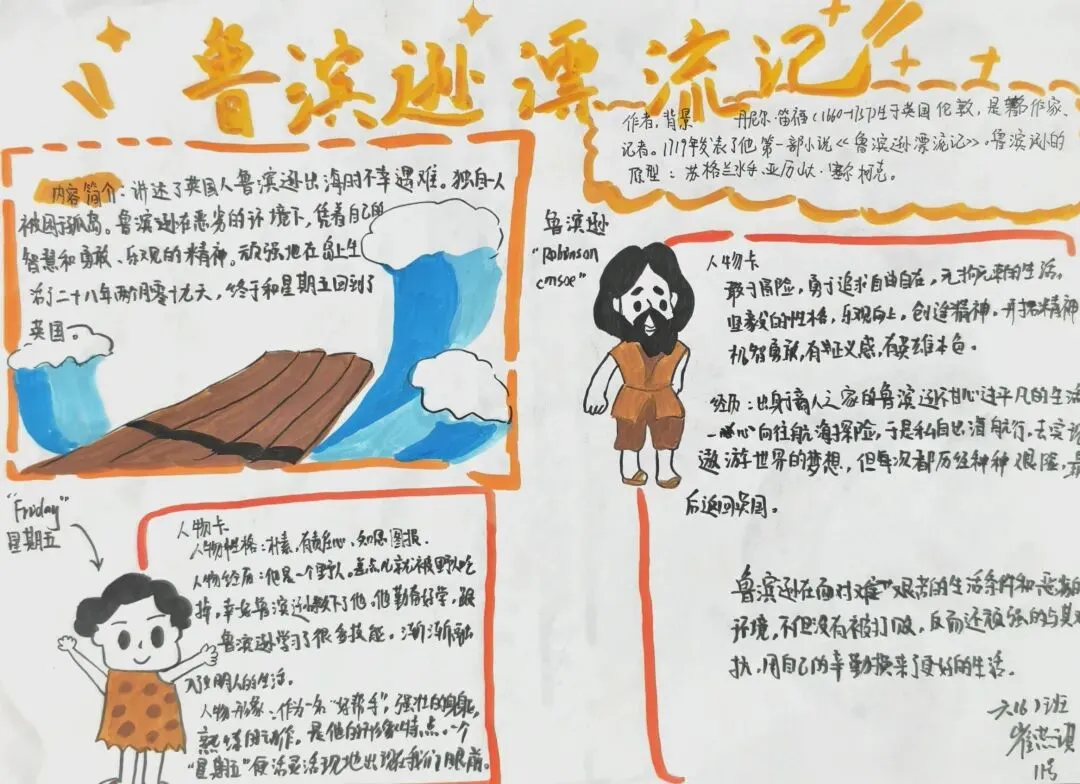 鲁滨逊漂流记
作者,背景 丹尼尔·笛福(1660-1731)生于英国伦敦,是作家、
记者。1719年发表了他第一部小说《鲁滨逊漂流记》。鲁滨逊的
原型:苏格兰水手亚历山大·塞尔柯克。
内容简介:讲述了英国人鲁滨逊出海时不幸遇难。独自一人
被困于孤岛。鲁滨逊在恶劣的环境下,凭着自己的
智慧和勇敢、乐观的精神。顽强地在岛上生
活了二十八年两个月零十九天,终于和星期五回到了
英国。
鲁滨逊
"Robinson
人物卡
敢于冒险,勇于追求自由自在,无拘无束的生活。
坚毅的性格,乐观向上,创造精神,开拓精神
机智勇敢,有正义感,有英雄本色。
经历:出身商人之家的鲁滨逊不甘心过平凡的生活
一心向往航海探险,于是私自出海航行,去实
遨游世界的梦想,但每次都历经种种艰险,最
后返回英国。
鲁滨逊在面对艰苦的生活条件和恶劣的
环境,不但没有被打败,反而还顽强的与其
抗,用自己的辛勤换来了更好的生活。
六(6)班
11号
"Friday"
星期五
人物卡
人物性格:朴素,有责任心、知恩图报.
人物经历:他是一个野人。差点儿就被野人吃
掉,幸好鲁滨逊救下了他。他勤奋好学,跟
鲁滨逊学习了很多技能。渐渐融
入文明人的生活。
人物形象:作为一名"好帮手",强壮的身躯,
熟练的动作。是他的形象特点。一个
"星期五"便活灵活现地出现在我们眼前。